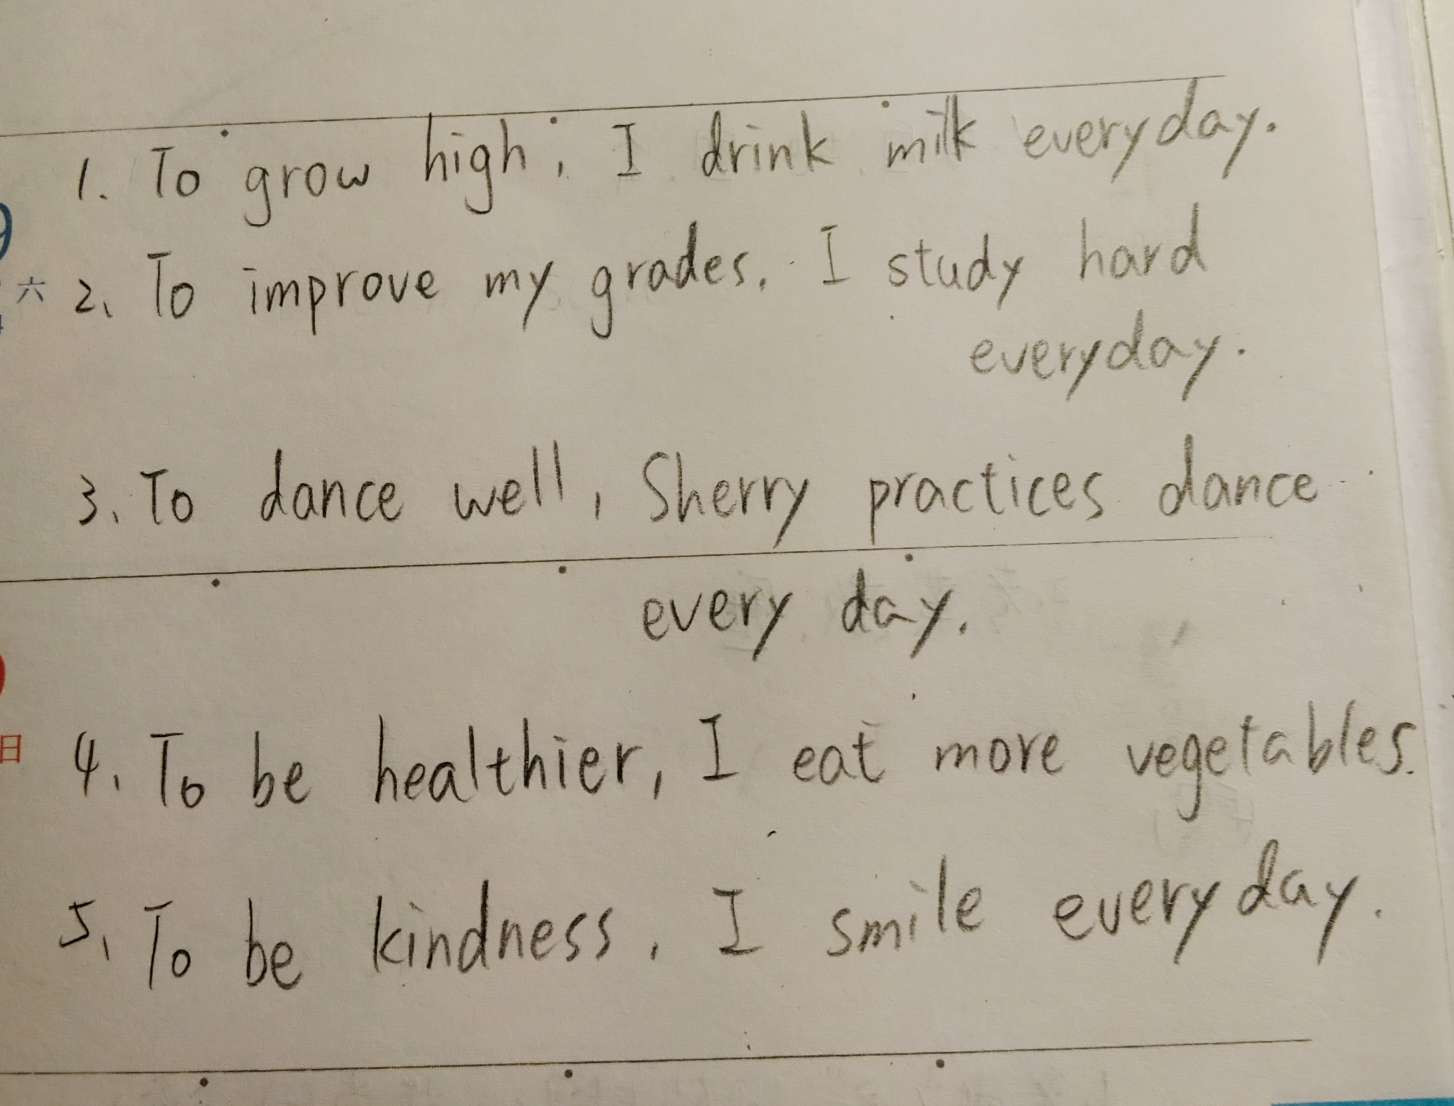 1. To grow high, I drink milk everyday.
六
2、To improve my grades, I study hard
everyday.
3、To dance well, Sherry practices dance
every day.
日
4、To be healthier, I eat more vegetables.
5、To be kindness, I smile every day.